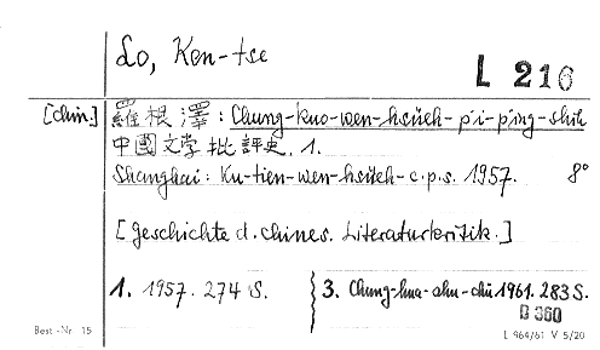 Lo, Ken-tse
L 216
[chin.] 羅根澤: Chung-kuo-wen-hsüeh-p'i-p'ing-shih
中國文学批評史. 1.
Shanghai: Ku-tien-wen-hsüeh-c.p.s. 1957. 8°
[Geschichte d. chines. Literaturkritik.]
1. 1957. 274 S. 3. Chung-hua-shu-chü 1961. 283 S.
B 360
Best.-Nr 15 L 964/61 V 5/20